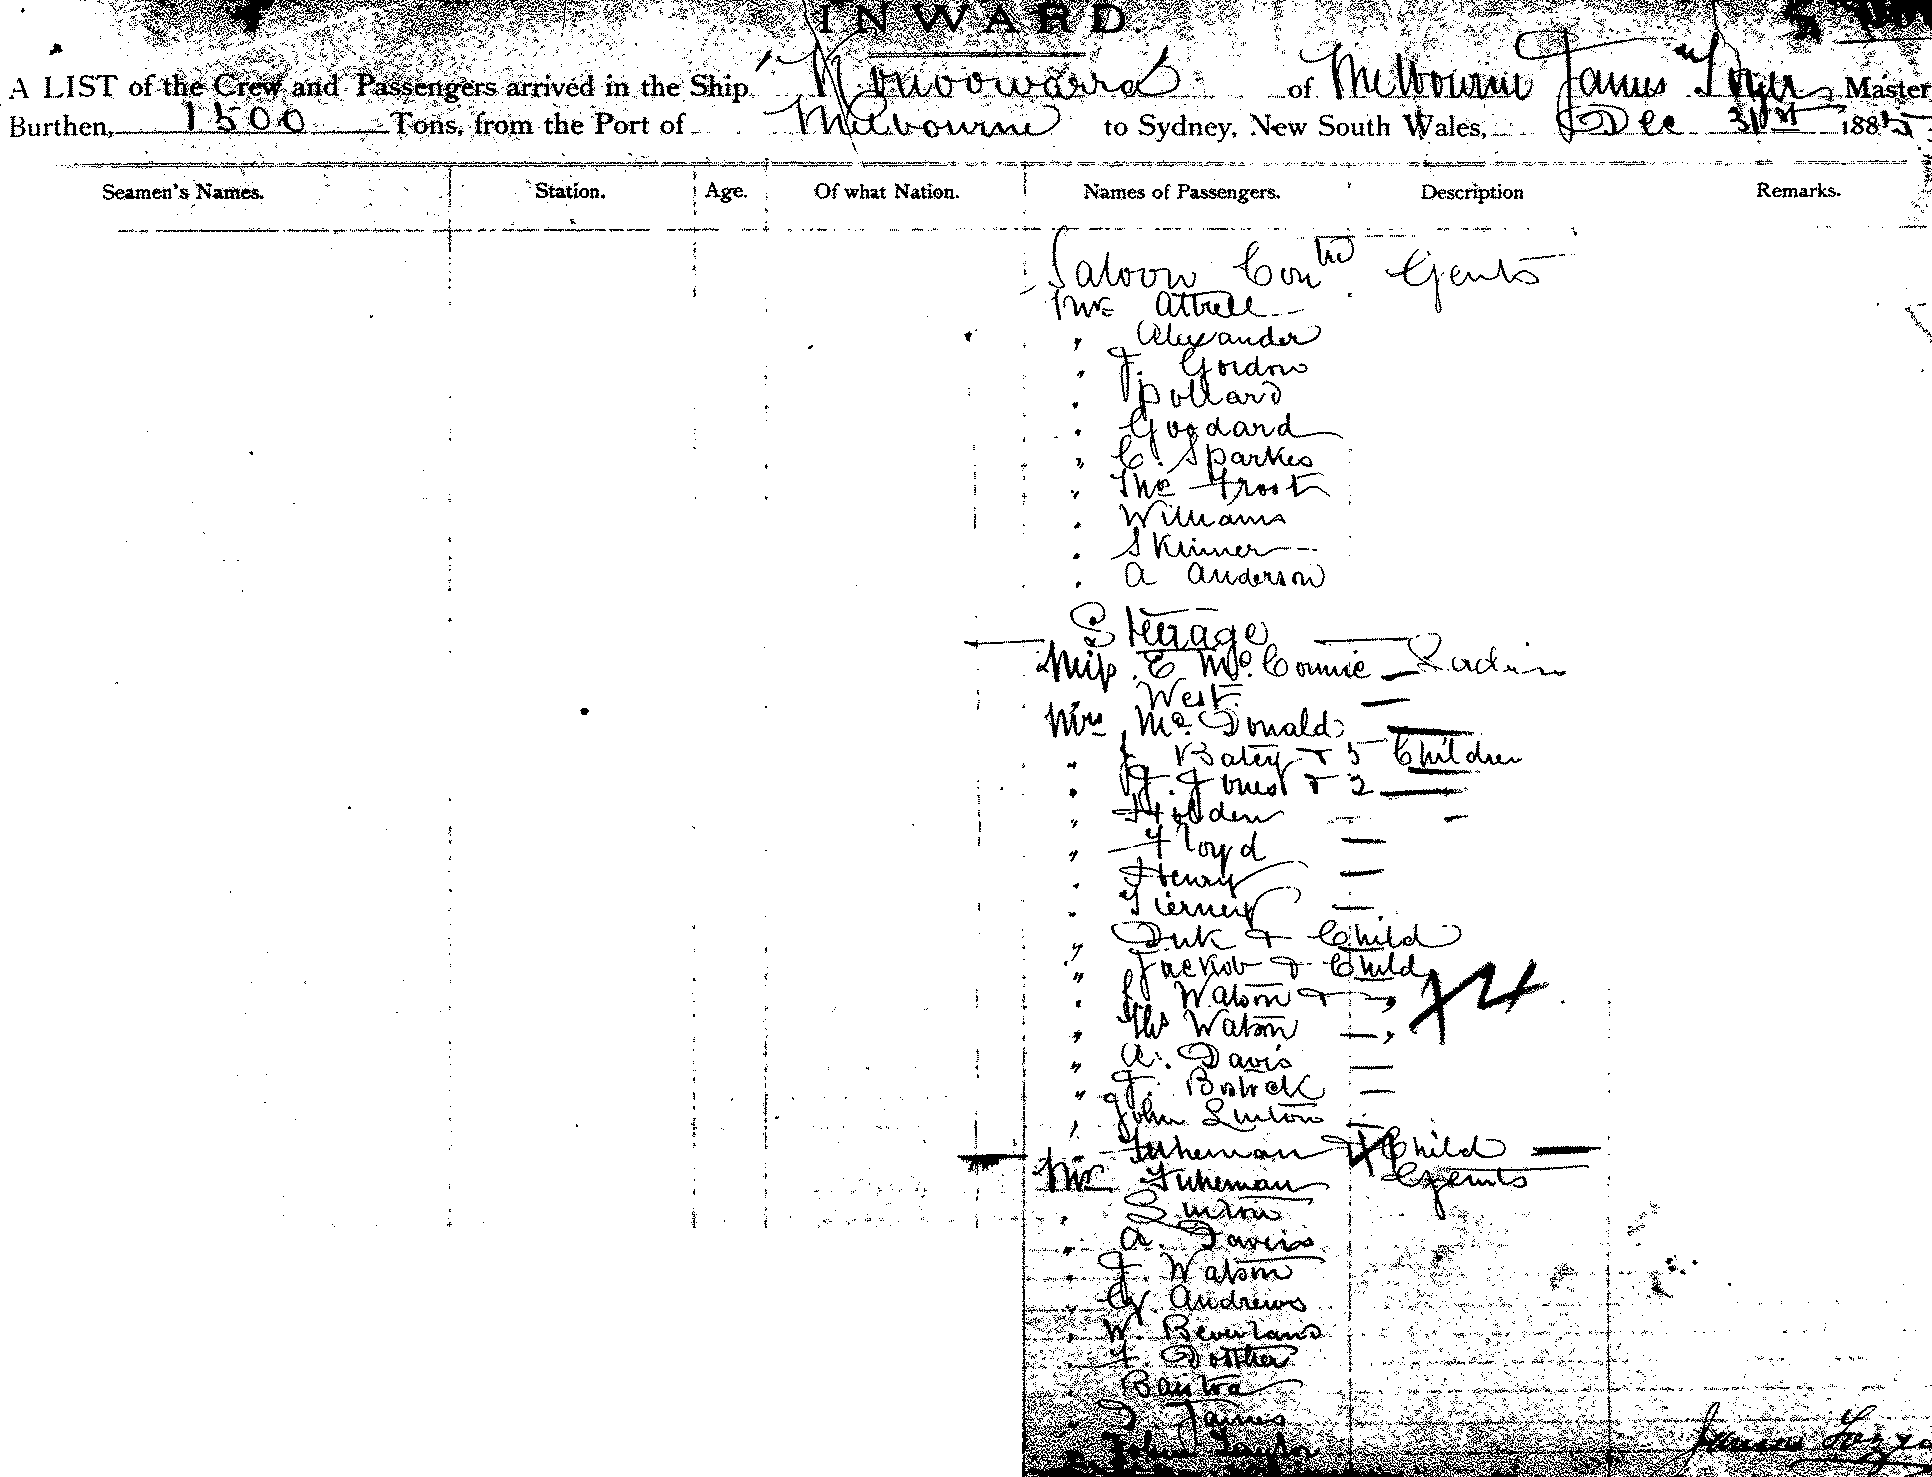 INWARD.
A LIST of the Crew and Passengers arrived in the Ship of Melbourne James Master
Burthen, 1500 Tons, from the Port of Melbourne to Sydney, New South Wales, Dec 31st 188
Seamen's Names. Station. Age. Of what Nation. Names of Passengers. Description Remarks.
Saloon Contd Gents
Mr Attrell
" Alexander
" J. Gordon
" Pollard
" Goodard
" C. Sparkes
" Thos Frost
" Williams
" Skinner
" A Anderson
Steerage
Miss E McConnie Ladies
West
Mrs McDonald
" J Batey & 5 Children
" J. Jones & 2
" Holden
" Floyd
" Henry
" Tierney
" Duk & Child
" Jackob & Child
" J Watson & "
" Thos Watson "
" A. Davis
" J. Bostock
" John Linton
" Tuheman & Child
Mr Tuheman Gents
" Linton
" A. Daveis
" J. Watson
" G. Andrews
" W. Beverland
" F.
"
" James
" John Taylor
James